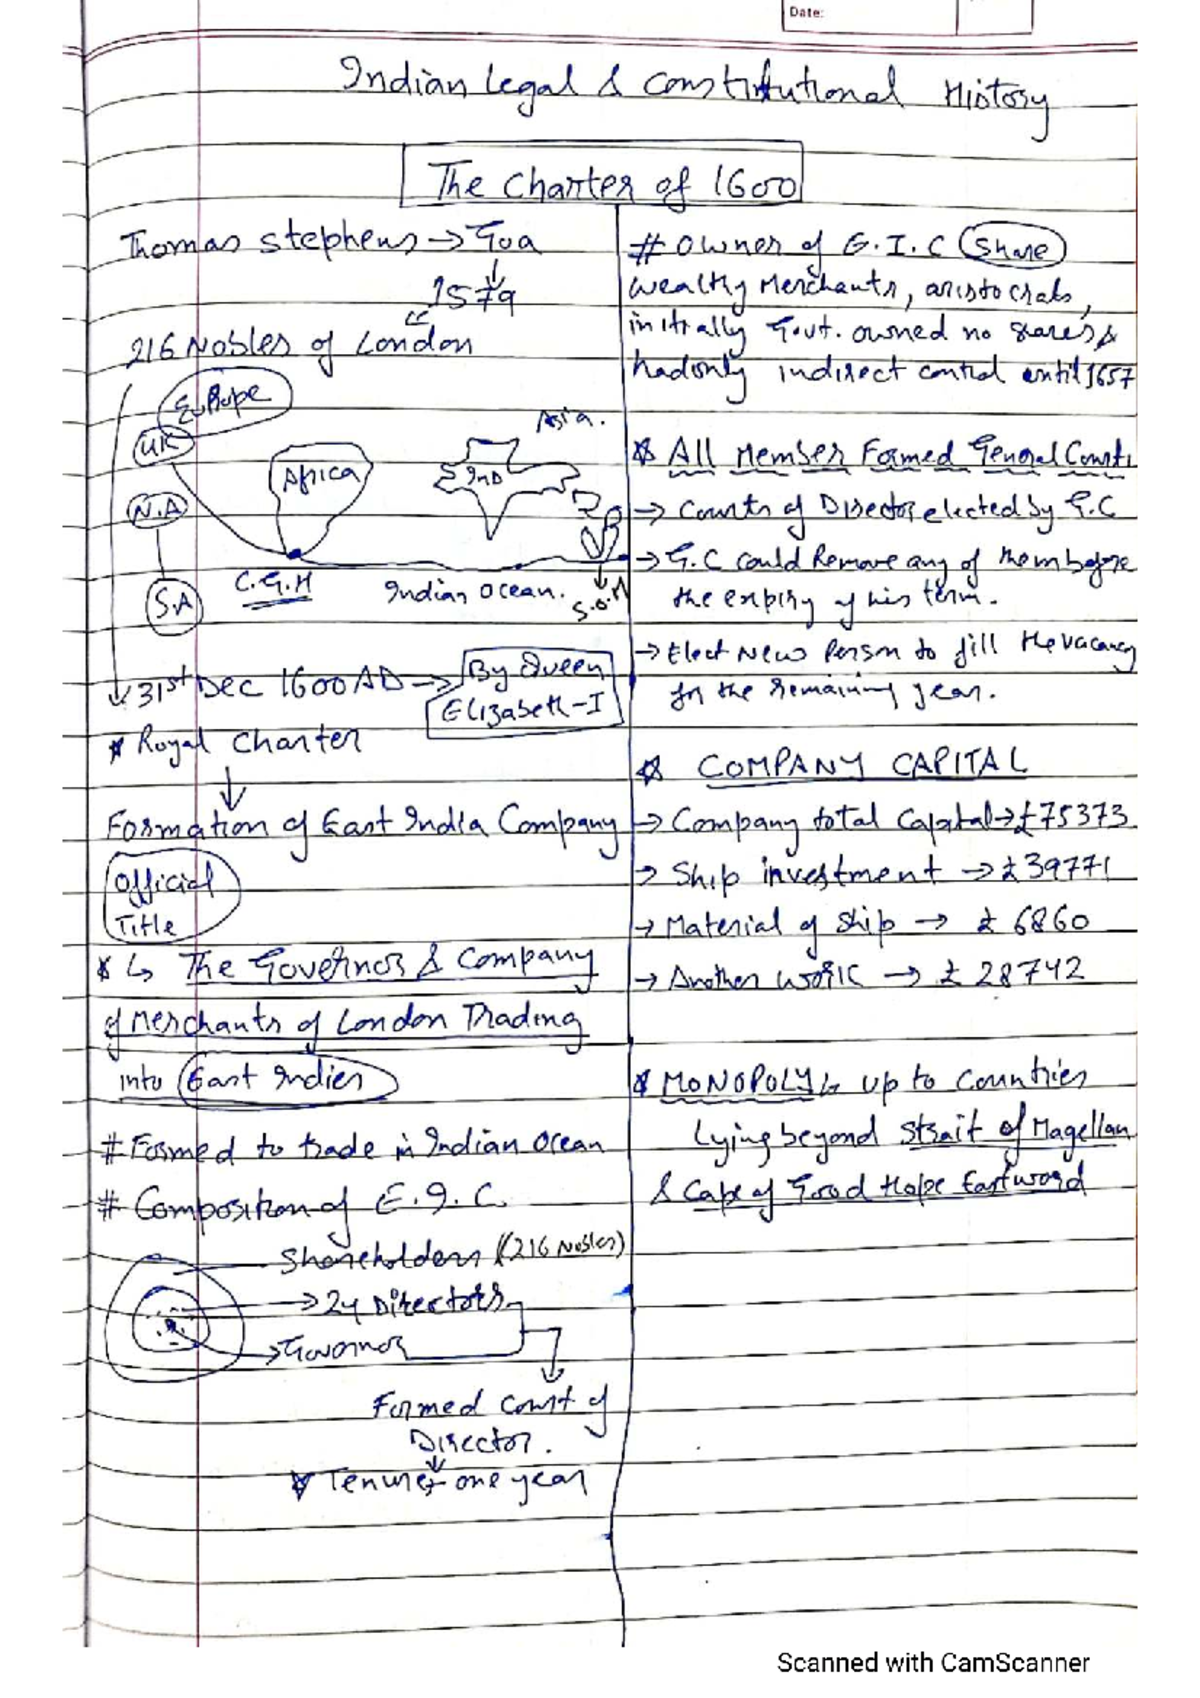 Date:
Indian Legal & Constitutional History
The Charter of 1600
Thomas Stephens → Goa
1579
216 Nobles of London
Europe
UK
N.A
S.A
Africa
Asia.
IND
C.G.H
Indian Ocean.
S.O.M
31st Dec 1600 AD → By Queen
Elizabeth-I
* Royal Charter
Formation of East India Company
Official
Title
* ↳ The Governor & Company
of Merchants of London Trading
into East Indies
# Formed to trade in Indian Ocean
# Composition of E.I.C.
Shareholders (216 Nobles)
→ 24 Directors
→ Governor
Formed Court of
Director.
* Tenure → one year
# Owner of E.I.C Share
Wealthy Merchants, aristocrats,
initially Govt. owned no shares &
had only indirect control until 1657
* All Member Formed General Court
→ Courts of Director elected by G.C
→ G.C could Remove any of them before
the expiry of his term.
→ Elect New Person to fill the vacancy
for the remaining year.
* COMPANY CAPITAL
→ Company total Capital → £75373
→ Ship investment → £39771
→ Material of Ship → £ 6860
→ Another Work → £ 28742
* MONOPOLY ↳ up to Countries
Lying beyond Strait of Magellan
& Cape of Good Hope Eastword
Scanned with CamScanner